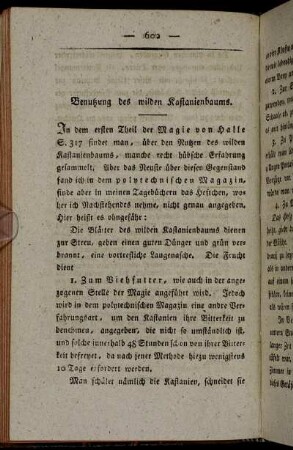 — 602 —
Benutzung des wilden Kastanienbaums.
In dem ersten Theil der Magie von Halle
S. 317 findet man, über den Nutzen des wilden
Kastanienbaums, manche recht hübsche Erfahrung
gesammelt. Aber das Neuste über diesen Gegenstand
fand ich in dem polytechnischen Magazin,
finde aber in meinen Tagebüchern das Heftchen, wo-
her ich Nachstehendes nehme, nicht genau angegeben.
Hier heißt es ohngefähr:
Die Blätter des wilden Kastanienbaums dienen
zur Streu, geben einen guten Dünger und grün ver-
brannt, eine vortrefliche Laugenasche. Die Frucht
dient
1. Zum Viehfutter, wie auch in der ange-
zogenen Stelle der Magie angeführt wird. Jedoch
wird in dem polytechnischen Magazin eine andre Ver-
fahrungsart, um den Kastanien ihre Bitterkeit zu
benehmen, angegeben, die nicht so umständlich ist,
und solche innerhalb 48 Stunden schon von ihrer Bitter-
keit befreyet, da nach jener Methode hiezu wenigstens
10 Tage erfordert werden.
Man schälet nämlich die Kastanien, schneidet sie